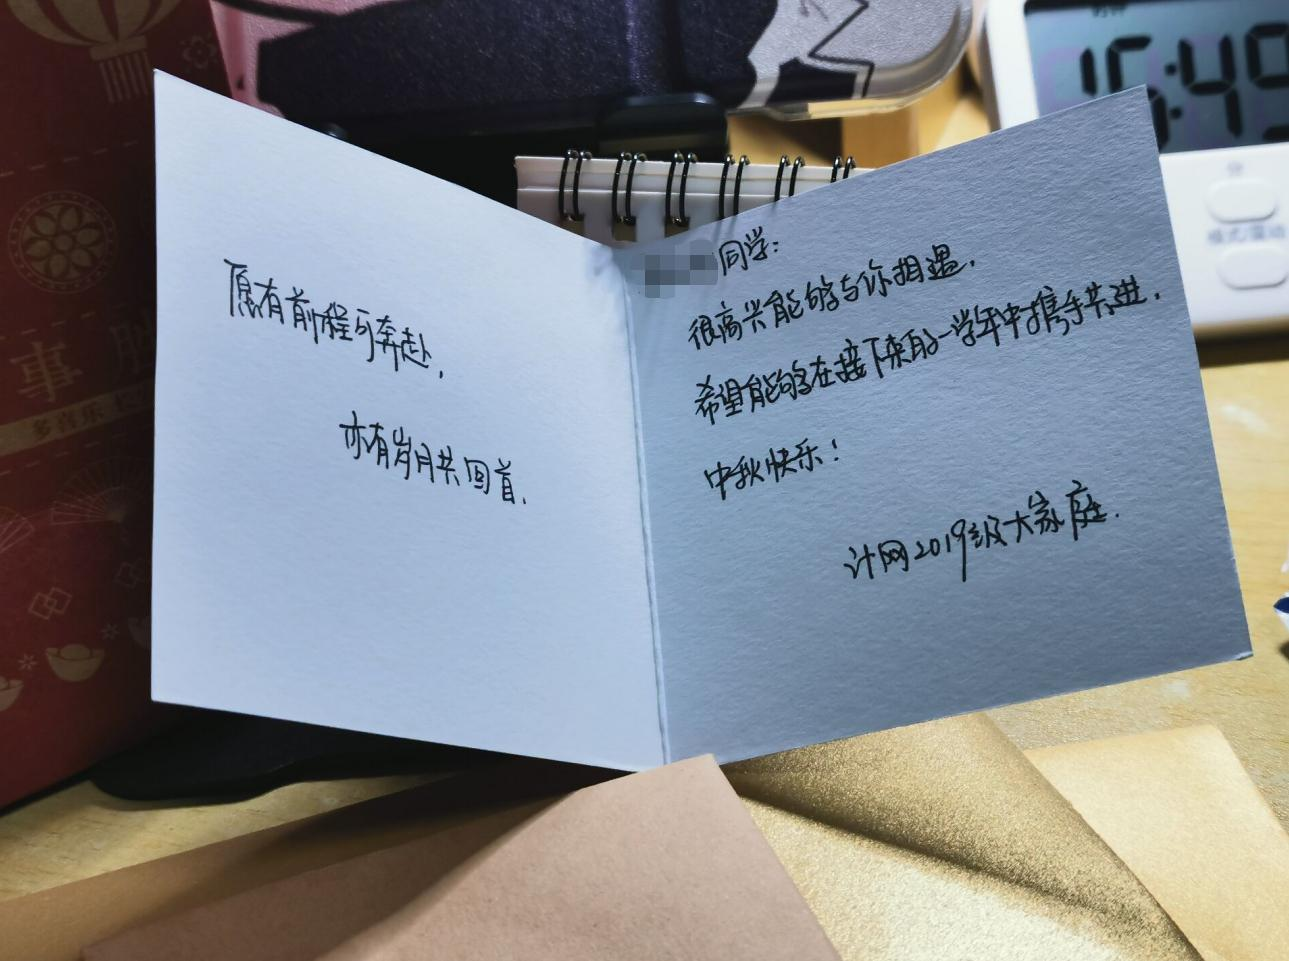 愿有前程可奔赴,
亦有岁月共回首.
同学:
很高兴能够与你相遇.
希望能够在接下来的一学年中携手共进.
中秋快乐!
计网2019级大家庭.
16:49
分
事
多喜乐